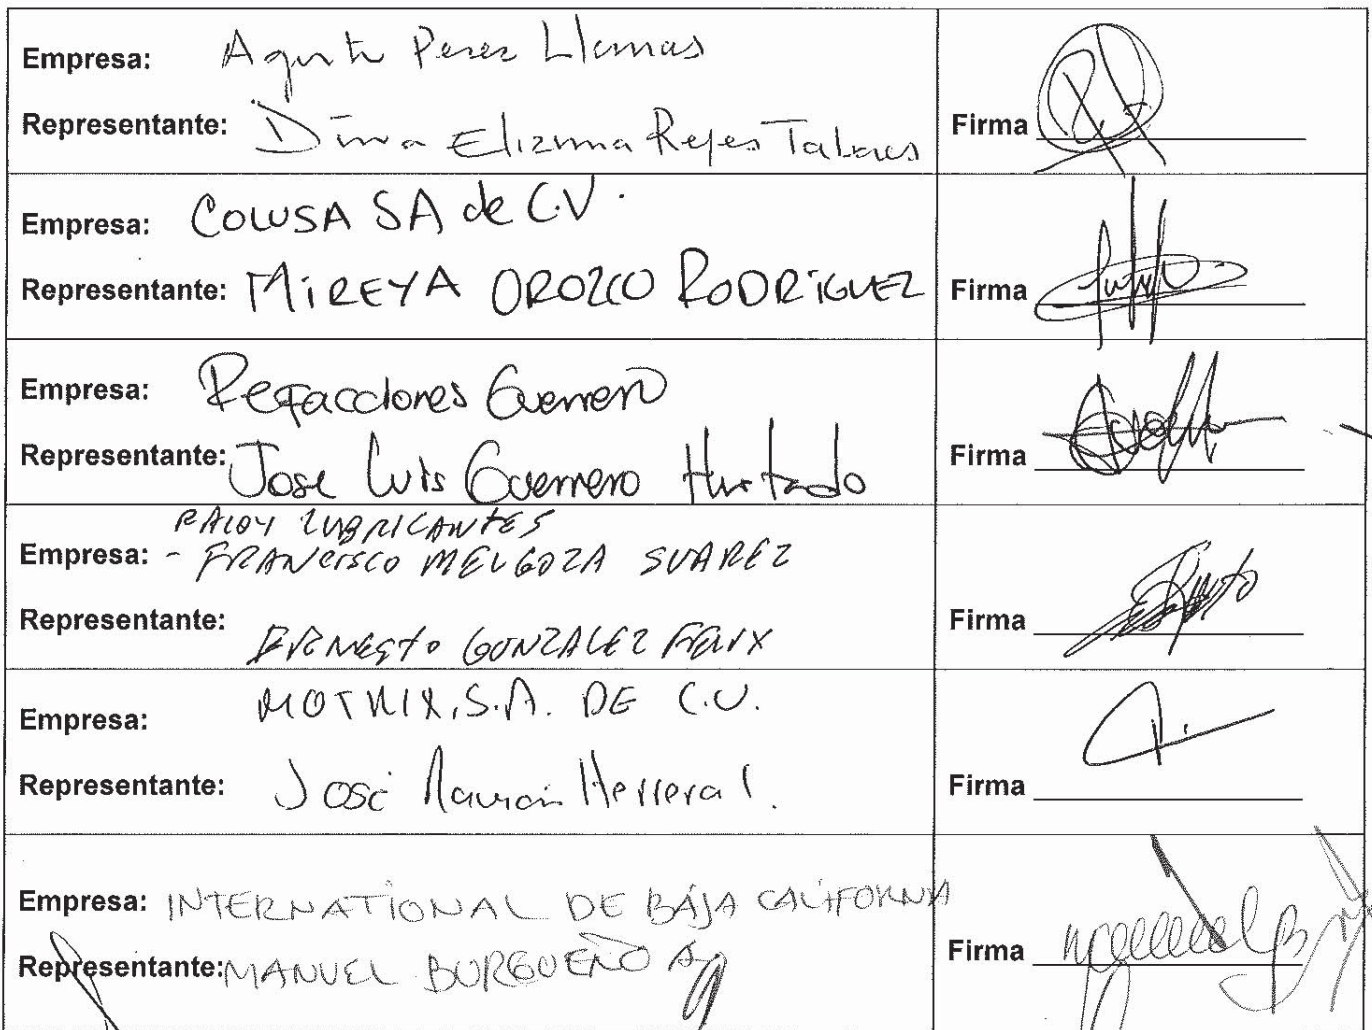 Empresa: Agustin Perez Llamas
Representante: Dina Elizma Reyes Tabares Firma
Empresa: COWSA SA de C.V.
Representante: MIREYA OROZCO RODRIGUEZ Firma
Empresa: Refacciones Guerrero
Representante: Jose Luis Guerrero Hurtado Firma
LUBRICANTES
Empresa: - FRANCISCO MELGOZA SUAREZ
Representante: ERNESTO GONZALEZ FELIX Firma
Empresa: MOTRIX, S.A. DE C.V.
Representante: José Ramón Herrera l. Firma
Empresa: INTERNATIONAL DE BAJA CALIFORNIA
Representante: MANUEL BURGUEÑO A. Firma